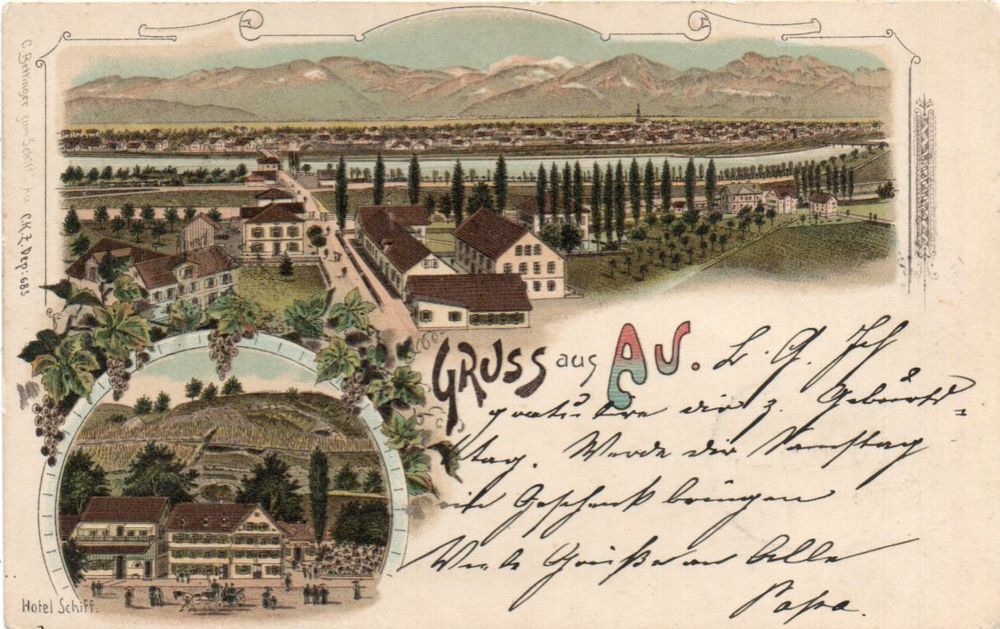 C. Bettinger zum Schiff, Au C.K.Z. Dep: 685
GRUSS aus AU. L. G. Ich
gratuliere dir z. Geburts-
tag. Werde dir Samstag
ein Geschenk bringen
Viele Grüße an Alle
Papa.
Hotel Schiff.